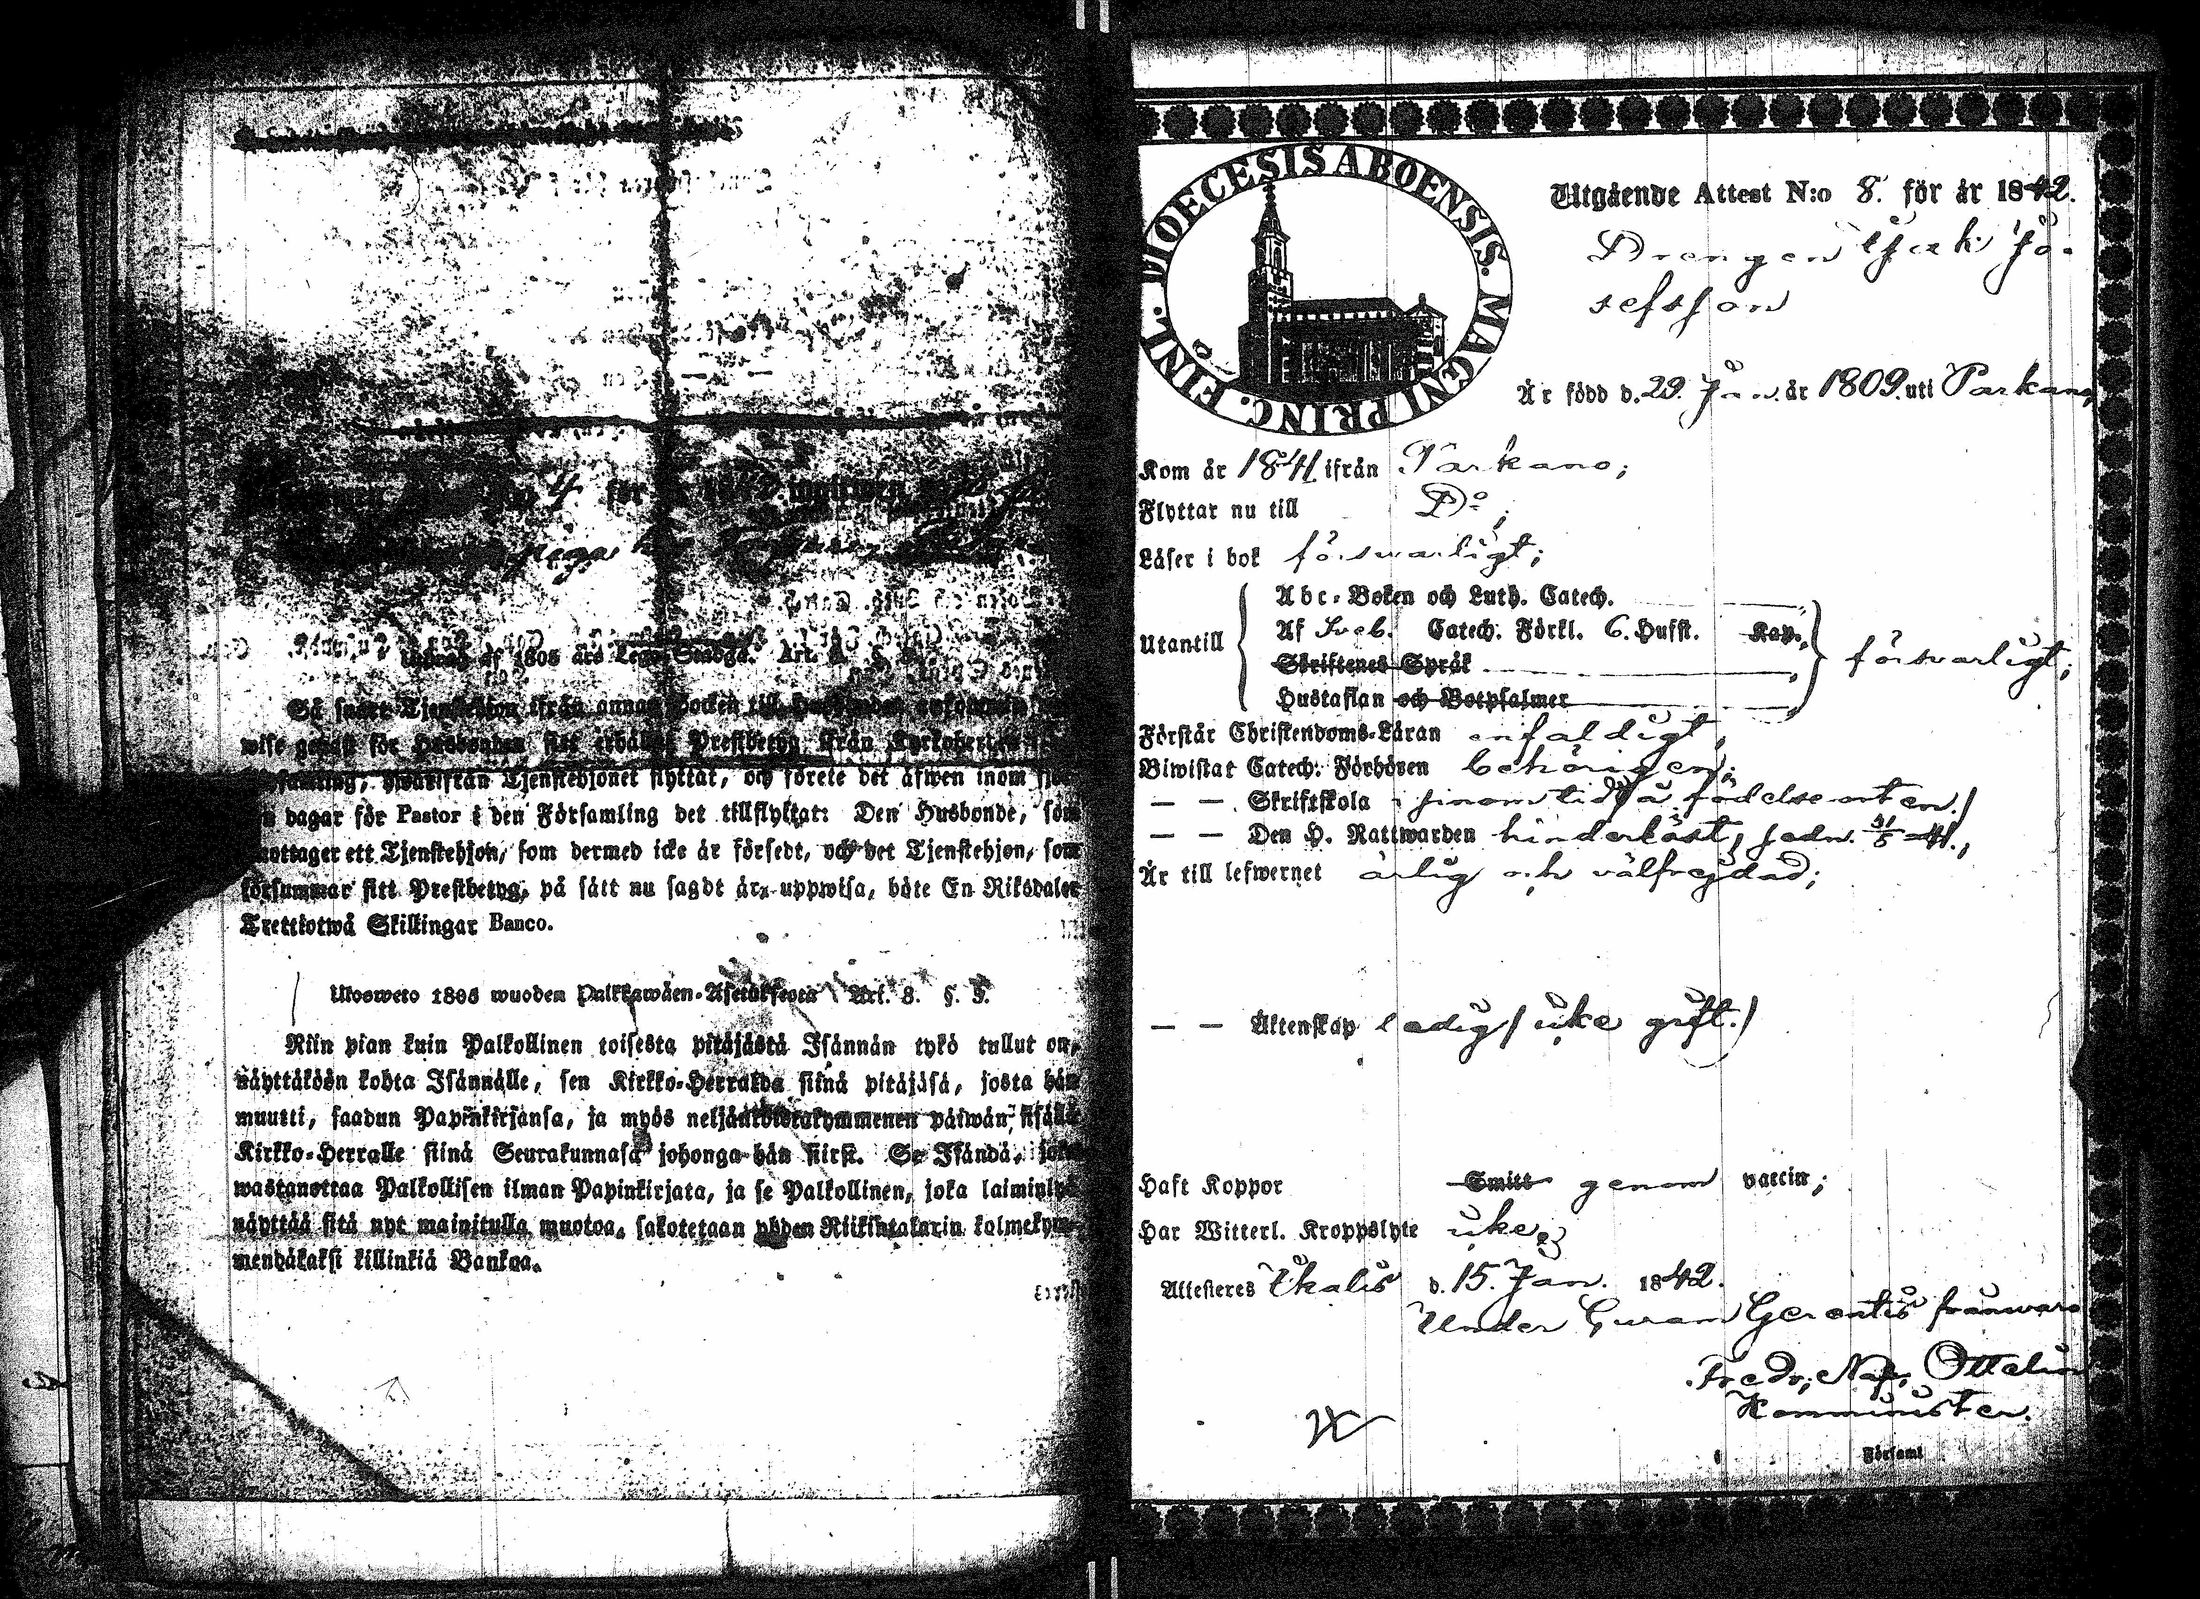 4 för
piga
Utdrag af 1805 års Lego-Stadga. Art.
Så snart Tjenstehjon ifrån annan Socken till Husbonden ankommer
wise genast för Husbonden sitt erhållna Prestbetyg från Kyrkoherden
församling, hwarifrån Tjenstehjonet flyttat, och förete det äfwen inom
dagar för Pastor i den Församling det tillflyttat: Den Husbonde, som
mottager ett Tjenstehjon, som dermed icke är försedt, och det Tjenstehjon, som
försummar sitt Prestbetyg, på sätt nu sagdt är, uppwisa, böte En Riksdaler
Trettiotwå Skillingar Banco.
Ulosweto 1805 wuoden Palkkawäen-Asetuksesta Art. 8. §. 9.
Niin pian kuin Palkollinen toisesta pitäjästä Isännän tykö tullut on,
näyttäköön kohta Isännälle, sen Kirkko-Herralda siinä pitäjäsä, josta hän
muutti, saadun Papinkirjansa, ja myös neljäntoistakymmenen päiwän sisällä
Kirkko-Herralle siinä Seurakunnasa johonga hän siirst. Se Isändä, joka
wastanottaa Palkollisen ilman Papinkirjata, ja se Palkollinen, joka laiminlyö
näyttää sitä nyt mainitulla muotoa, sakotetaan yhden Riikintalarin kolmekym-
mendäkaksi killinkiä Bankoa.
DIOECESIS ABOENSIS. MAGNI PRINC. FINL.
Utgående Attest N:o 8. för år 1842.
Drengen Isak Jo-
sefsson
Är född d. 29. Jan. år 1809. uti Parkano,
Kom år 1841 ifrån Parkano;
Flyttar nu till Do;
Läser i bok försvarligt;
Abc-Boken och Luth. Catech.
Utantill Af Sveb. Catech. Förkl. 6. Hufst. Kap. försvarligt;
Skriftenes Språk
Hustaflan och Botpsalmer
Förstår Christendoms-Läran enfaldigt,
Biwistat Catech. Förhören behörigen;
— — Skriftskola
— — Den H. Nattwarden hinderlöst,
Är till lefwernet ärlig och välfrejdad;
— — Äktenskap ledig (icke gift.)
Haft Koppor Smitt genom vaccin;
Har Witterl. Kroppslyte icke,
Attesteras Ikalis d. 15. Jan. 1842.
Under Curam Gerentis frånwaro
Fredr. Nap. Ottelin
Kommunister.
i Församl